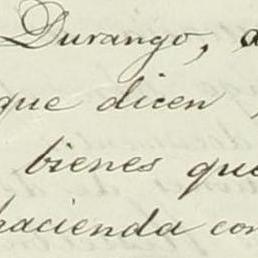 Durango,
que dicen
bienes que
hacienda con